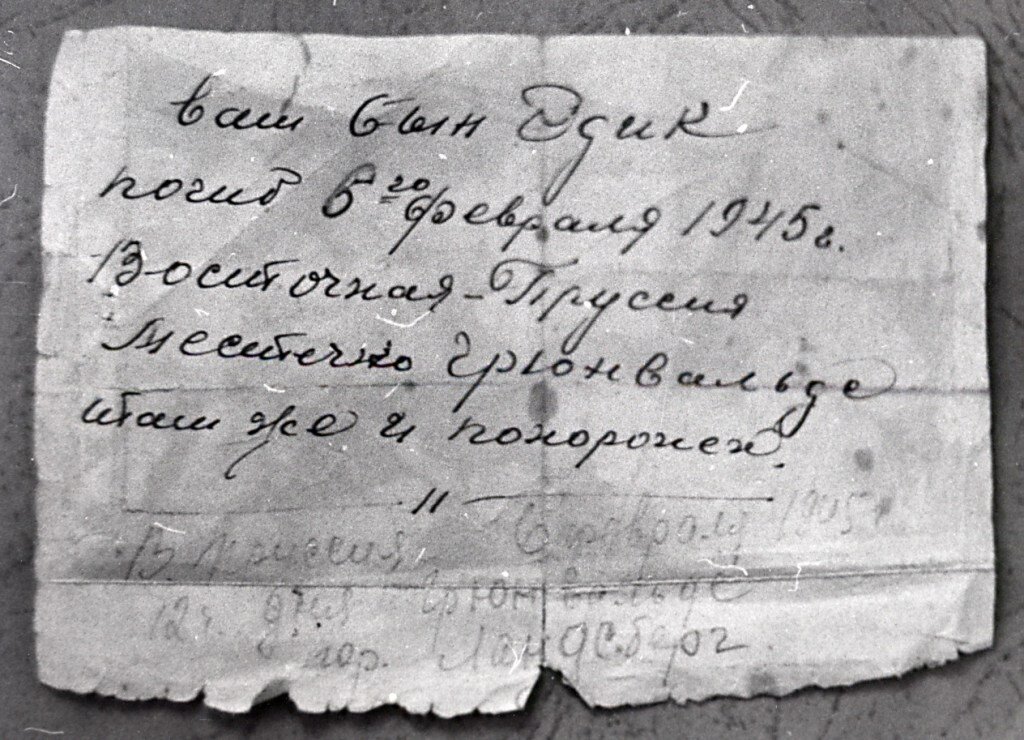 ваш сын Эдик
погиб 6го февраля 1945г.
Восточная-Пруссия
местечко Грюнвальде
там же и похоронен.
"
В. Пруссия 6 февраля 1945 г
12 ч. дня Грюнвальде
гор. Ландсберг.